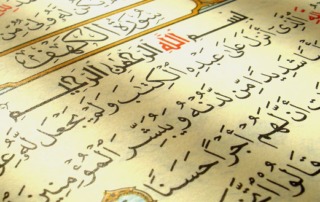 سُورَةُ الْكَهْفِ
بِسْمِ اللهِ الرَّحْمٰنِ الرَّحِيمِ
الَّذِي أَنْزَلَ عَلَى عَبْدِهِ الْكِتَبَ وَلَمْ يَجْعَلْ لَهُ
شَدِيدًا مِنْ لَدُنْهُ وَيُبَشِّرَ الْمُؤْمِنِينَ
أَنَّ لَهُمْ أَجْرًا حَسَنًا
قَالُوا